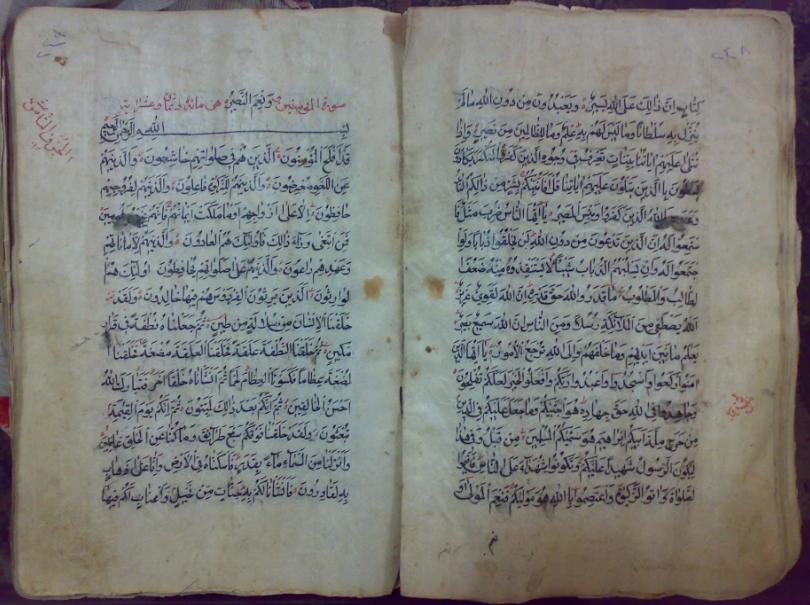 ٢٤٨
كتاب ان ذالك على الله يسير ويعبدون من دون الله ما لم
ينزل به سلطانا وما ليس لهم به علم وما للظالمين من نصير واذا
تتلى عليهم اياتنا بينات تعرف في وجوه الذين كفروا المنكر يكادون
يسطون با الذين يتلون عليهم اياتنا قل افانبئكم بشر من ذالكم النار
وعدها الله الذين كفروا وبئس المصير يا ايها الناس ضرب مثل فا
ستمعوا له ان الذين تدعون من دون الله لن يخلقوا ذبابا ولوا
جتمعوا له وان يسلبهم الذباب شيئا لا يستنقذوه منه ضعف ا
لطالب والمطلوب ما قدروا الله حق قدره ان الله لقوي عزيز
الله يصطفي من الملائكة رسلا ومن الناس ان الله سميع بصير
يعلم ما بين ايديهم وما خلفهم والى الله ترجع الامور يا ايها الذين
امنوا اركعوا واسجدوا واعبدوا ربكم وافعلوا الخير لعلكم تفلحون
وجاهدوا في الله حق جهاده هو اجتبيكم وما جعل عليكم في الدين
من حرج ملة ابيكم ابراهيم هو سميكم المسلمين من قبل وفي هذا
ليكون الرسول شهيدا عليكم وتكونوا شهداء على الناس فاقيموا ا
لصلواة واتوا الزكوة واعتصموا با الله هو موليكم فنعم المولى
ونعم النصير سورة المؤمنين هي مائة وثمان وعشر اية
بسم الله الرحمن الرحيم
قد افلح المؤمنون الذين هم في صلواتهم خاشعون والذينهم
عن اللغو معرضون والذينهم للزكوة فاعلون والذينهم لفروجهم
حافظون الا على ازواجهم او ما ملكت ايمانهم فانهم غير ملومين
فمن ابتغى وراء ذالك فاولئك هم العادون والذينهم لاماناتهم
وعهدهم راعون والذينهم على صلواتهم يحافظون اولئك هم ا
لوارثون الذين يرثون الفردوس هم فيها خالدون ولقد
خلقنا الانسان من سلالة من طين ثم جعلناه نطفة في قرار
مكين ثم خلقنا النطفة علقة فخلقنا العلقة مضغة فخلقنا ا
لمضغة عظاما فكسونا العظام لحما ثم انشاناه خلقا اخر فتبارك الله
احسن الخالقين ثم انكم بعد ذالك لميتون ثم انكم يوم القيمة
تبعثون ولقد خلقنا فوقكم سبع طرائق وما كنا عن الخلق غافلين
وانزلنا من السماء ماء بقدر فاسكناه في الارض وانا على ذهاب
به لقادرون فانشانا لكم به جنات من نخيل واعناب لكم فيها